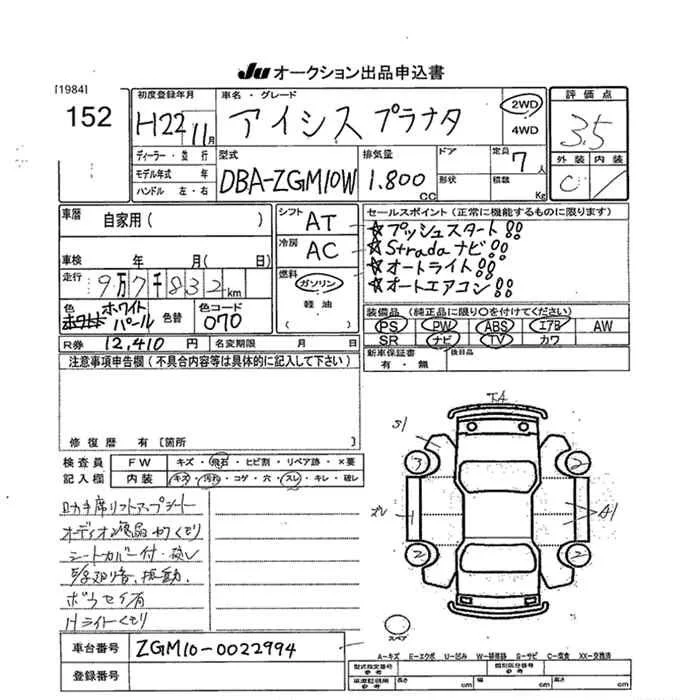 Ju オークション出品申込書
[1984]
152
初度登録年月
H22 11月
車名・グレード
アイシス プラナタ
2WD
4WD
評価点
3.5
外装 内装
C
ディーラー・並行
モデル年式 年
ハンドル 左・右
型式
DBA-ZGM10W
排気量
1.800 CC
ドア
形状
定員 7人
積載 Kg
車歴 自家用( )
車検 年 月( 日)
走行 9万7千832km
色 ホワイトパール 色替
色コード 070
シフト AT
冷房 AC
燃料 ガソリン
軽油
( )
セールスポイント(正常に機能するものに限ります)
☆プッシュスタート!!
☆Stradaナビ!!
☆オートライト!!
☆オートエアコン!!
装備品(純正品に限り○を付けてください)
PS PW ABS エアB AW
SR ナビ TV カワ
R券 12,410円 名変期限 月 日
新車保証書 後日品
有・無
注意事項申告欄(不具合内容等は具体的に記入して下さい)
修復歴 有[箇所 ]
検査員記入欄
FW キズ・飛石・ヒビ割・リペア跡・×要
内装 キズ・汚れ・コゲ・穴・スレ・キレ・破レ
助手席リフトアップシート
オーディオ液晶ヤケくもり
シートカバー付・破レ
Hライトくもり
下A
S1
3
2
ズレ
1
A1
2
2
スペア
車台番号 ZGM10-0022994
登録番号
A-キズ E-エクボ U-凹み W-補修跡 S-サビ C-腐食 XX-交換済
型式指定番号 参考
類別区分番号 参考
車庫証明用 参考
長さ cm 幅 cm 高さ cm